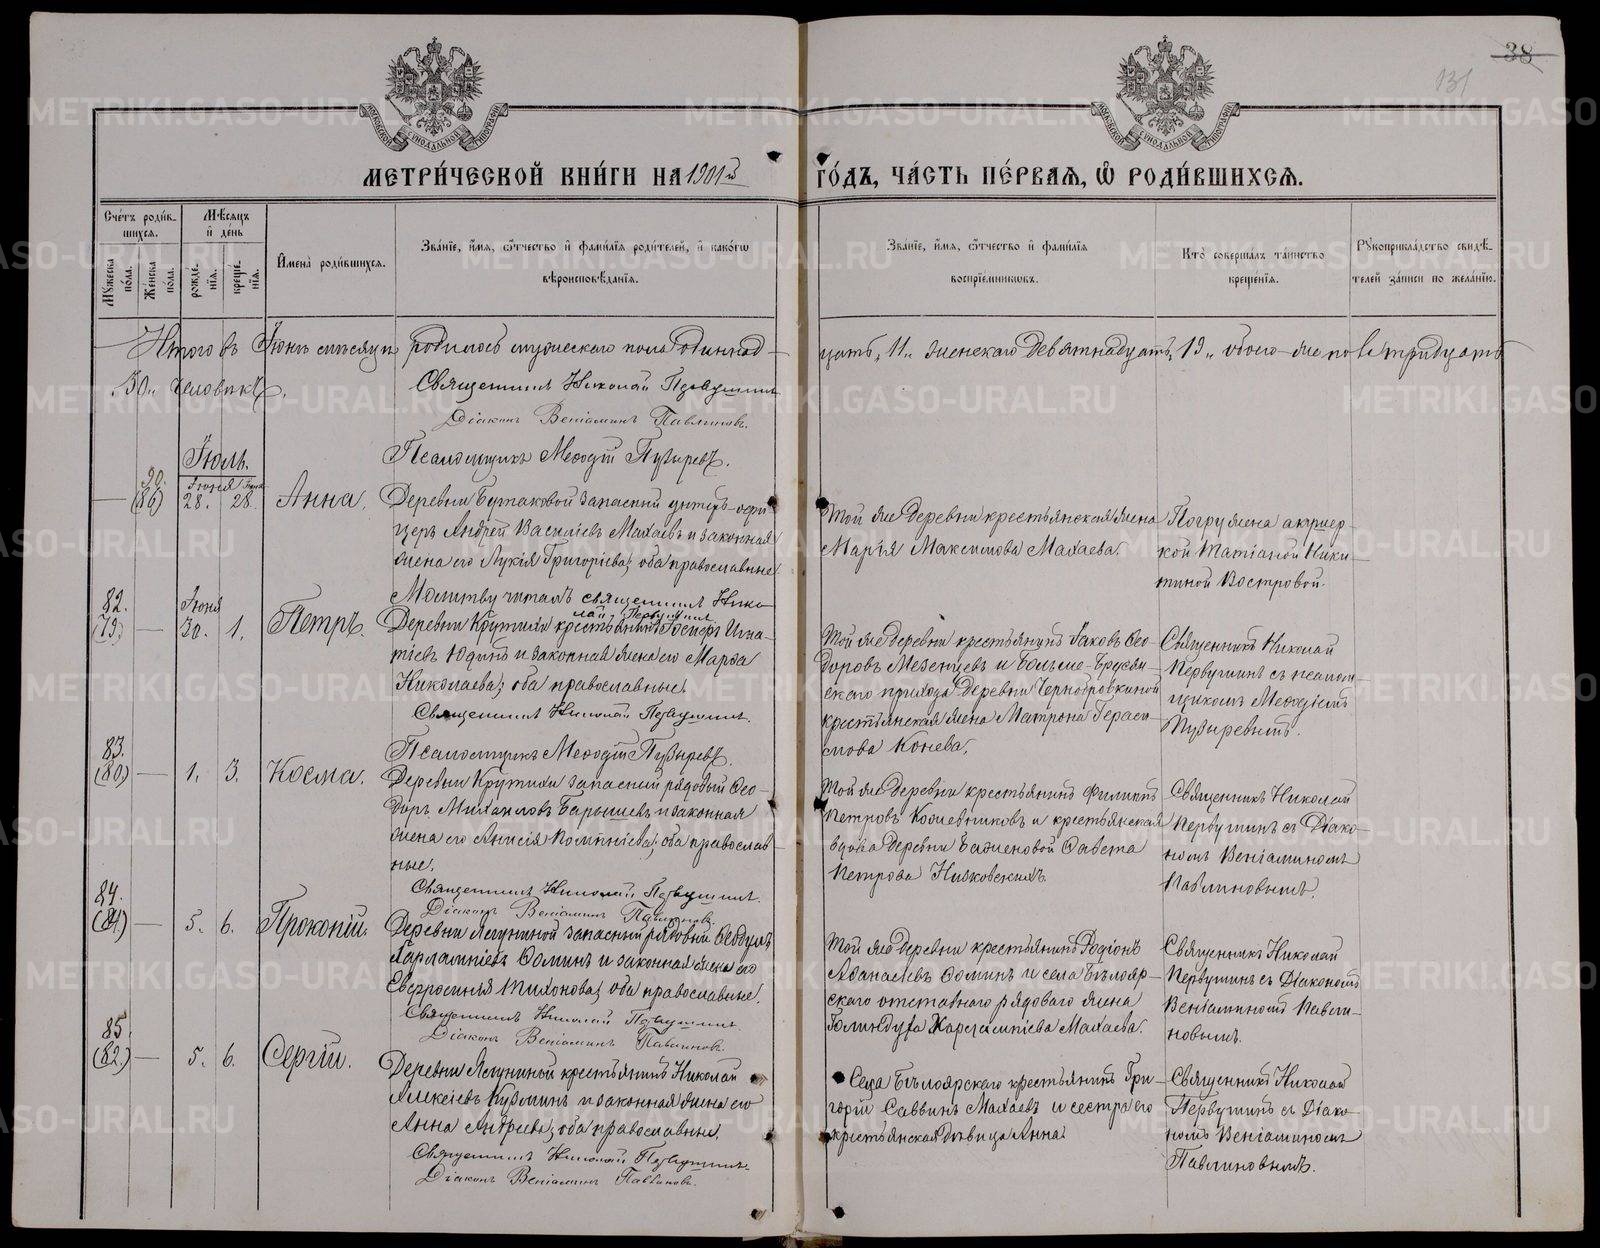 38
131
МЕТРИ́ЧЕСКОЙ КНИ́ГИ НА 1901й
ГО́ДЪ, ЧА́СТЬ ПЕ́РВАЯ, Ѡ РОДИ́ВШИХСЯ.
Сче́тъ роди́в-
шихся.
Му́жеска
по́ла.
Же́нска
по́ла.
Мѣ́сяцъ
и де́нь
рожде́-
нїя.
креще́-
нїя.
Имена̀ роди́вшихся.
Зва́нїе, и́мя, о́тчество и фами́лїя роди́телей, и како́гѡ
вѣроисповѣ́данїя.
Зва́нїе, и́мя, о́тчество и фами́лїя
воспрїе́мникѡвъ.
Кто̀ соверша́лъ та́инство
креще́нїя.
Рукоприкла́дство свидѣ́-
телей за́писи по жела́нїю.
Итого въ Іюнѣ мѣсяцѣ родилось мужескаго пола Одиннад-
цать „11„ женскаго Девятнадцать „19„ обоего-же пола тридцать
„30„ человѣкъ.
Священникъ Николай Первушинъ
Діаконъ Веніаминъ Павлиновъ.
Псаломщикъ Меѳодій Пузыревъ.
Іюль.
90.
(86)
Іюня
28.
28.
Анна.
Деревни Бутаковой запасный унтеръ-офи-
церъ Андрей Василіевъ Махаевъ и законная
жена его Лукія Григоріева; оба православные.
Молитву читалъ священникъ Нико-
лай Первушинъ
Той же деревни крестьянская жена
Марія Максимова Махаева.
Погружена акушер-
кой Татіаной Ники-
тиной Востровой.
82.
(79)
Іюня
30.
1.
Петръ.
Деревни Крутихи крестьянинъ Игна-
тіевъ Юдинъ и законная жена его Марѳа
Николаева; оба православные.
Священникъ Николай Первушинъ.
Псаломщикъ Меѳодій Пузыревъ.
Той же деревни крестьянинъ Іаковъ Ѳео-
доровъ Мезенцевъ и Больше-Брусян-
скаго прихода деревни
крестьянская жена Матрона Гераси-
мова Конева.
Священникъ Николай
Первушинъ съ псалом-
щикомъ Меѳодіемъ
Пузыревымъ.
83.
(80)
1.
3.
Косма.
Деревни Крутихи запасный рядовый Ѳео-
доръ Михаиловъ Барышевъ и законная
жена его Анисія; оба православ-
ные.
Священникъ Николай Первушинъ.
Діаконъ Веніаминъ Павлиновъ.
Той же деревни крестьянинъ Филиппъ
Петровъ Кожевниковъ и крестьянская
вдова деревни Баженовой Савета
Петрова Низковскихъ.
Священникъ Николай
Первушинъ съ Діако-
номъ Веніаминомъ
Павлиновымъ.
84.
(81)
5.
6.
Прокопій.
Деревни Ялуниной запасный рядовый Ѳеодулъ
Харлампіевъ Ѳоминъ и законная жена его
Евфросинія Тихонова; оба православные.
Священникъ Николай Первушинъ
Діаконъ Веніаминъ Павлиновъ.
Той же деревни крестьянинъ Родіонъ
Аѳанасіевъ Ѳоминъ и села Бѣлояр-
скаго отставного рядоваго жена
Голиндуха Харлампіева Махаева.
Священникъ Николай
Первушинъ съ Діакономъ
Веніаминомъ Павли-
новымъ.
85.
(82)
5.
6.
Сергій.
Деревни Ялуниной крестьянинъ Николай
Алексіевъ Кузминъ и законная жена его
Анна Андреева; оба православные.
Священникъ Николай Первушинъ
Діаконъ Веніаминъ Павлиновъ.
Села Бѣлоярскаго крестьянинъ Гри-
горій Саввинъ Махаевъ и сестра его
крестьянская дѣвица Анна.
Священникъ Николай
Первушинъ съ Діако-
номъ Веніаминомъ
Павлиновымъ.
METRIKI.GASO-URAL.RU